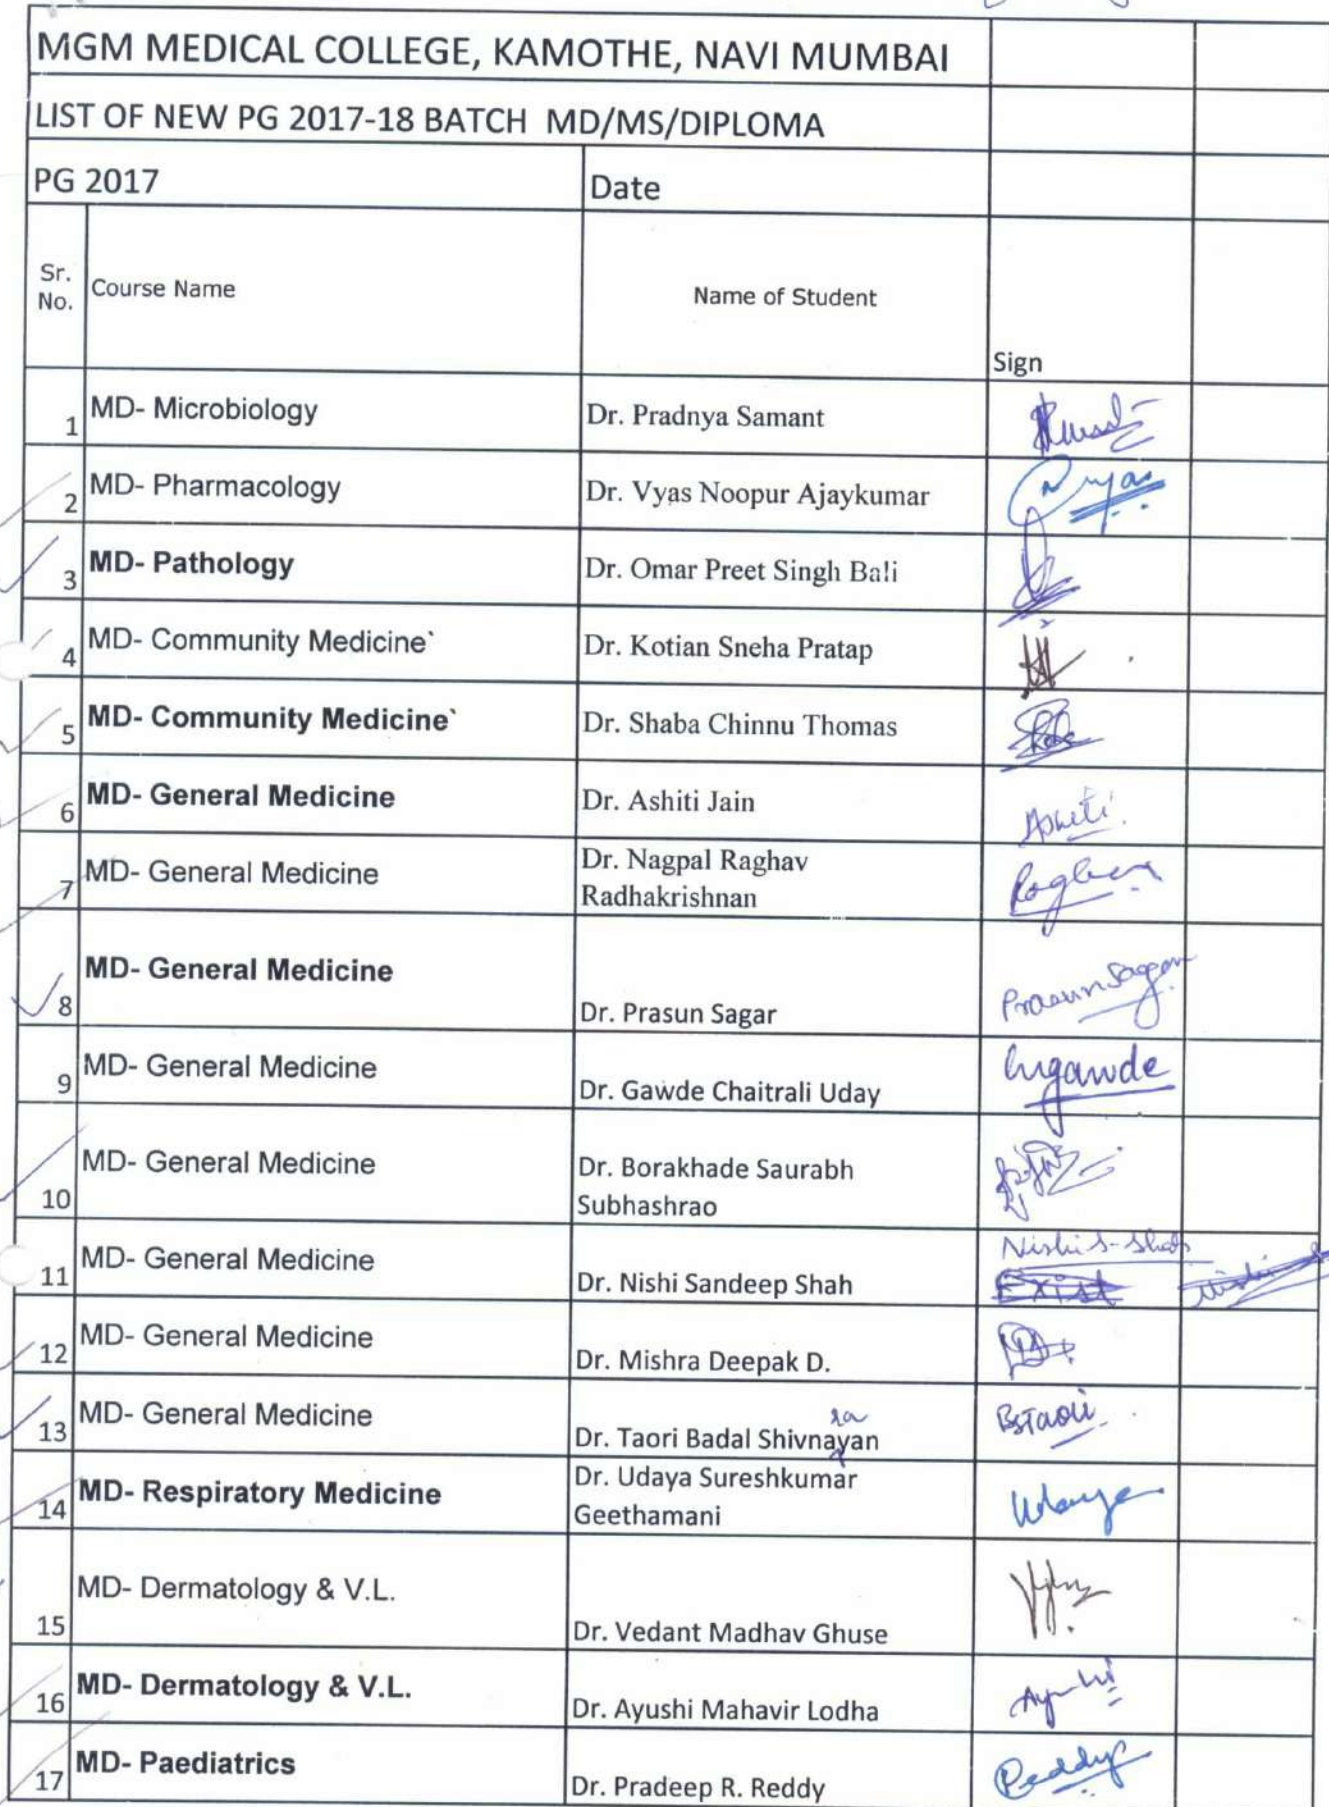 MGM MEDICAL COLLEGE, KAMOTHE, NAVI MUMBAI
LIST OF NEW PG 2017-18 BATCH MD/MS/DIPLOMA
PG 2017 Date
Sr. No. Course Name Name of Student Sign
1 MD- Microbiology Dr. Pradnya Samant
2 MD- Pharmacology Dr. Vyas Noopur Ajaykumar
3 MD- Pathology Dr. Omar Preet Singh Bali
4 MD- Community Medicine` Dr. Kotian Sneha Pratap
5 MD- Community Medicine` Dr. Shaba Chinnu Thomas
6 MD- General Medicine Dr. Ashiti Jain Ashiti
7 MD- General Medicine Dr. Nagpal Raghav
Radhakrishnan Raghav
8 MD- General Medicine Dr. Prasun Sagar Prasun Sagar
9 MD- General Medicine Dr. Gawde Chaitrali Uday
10 MD- General Medicine Dr. Borakhade Saurabh
Subhashrao
11 MD- General Medicine Dr. Nishi Sandeep Shah Nishi S. Shah
Exist
12 MD- General Medicine Dr. Mishra Deepak D.
13 MD- General Medicine ra
Dr. Taori Badal Shivnayan BSTaori
14 MD- Respiratory Medicine Dr. Udaya Sureshkumar
Geethamani Udaya
15 MD- Dermatology & V.L. Dr. Vedant Madhav Ghuse
16 MD- Dermatology & V.L. Dr. Ayushi Mahavir Lodha Ayushi
17 MD- Paediatrics Dr. Pradeep R. Reddy Reddy